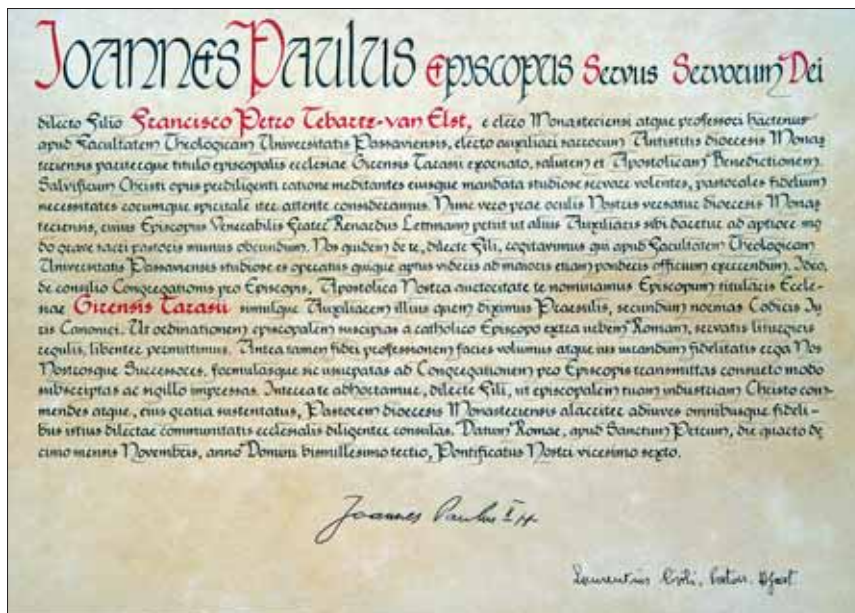 Joannes Paulus Episcopus Servus Servorum Dei
dilecto Filio Francisco Petro Tebartz-van Elst, e clero Monasteriensi atque professori hactenus
apud Facultatem Theologicam Universitatis Passaviensis, electo auxiliari sacrorum Antistiti dioecesis Monas
teriensis pariterque titulo episcopalis ecclesiae Girensis Tarasii exornato, salutem et Apostolicam Benedictionem.
Salvificum Christi opus perdiligenti ratione meditantes eiusque mandata studiose servare volentes, pastorales fidelium
necessitates eorumque spiritale iter attente consideramus. Nunc vero prae oculis Nostris versatur dioecesis Monas
teriensis, cuius Episcopus Venerabilis Frater Renardus Lettmann petiit ut alius Auxiliaris sibi daretur ad aptiore mo
do grave sacri pastoris munus obeundum. Nos quidem de te, dilecte Fili, cogitavimus qui apud Facultatem Theologicam
Universitatis Passaviensis studiose es operatus quique aptus videris ad maioris etiam ponderis officium exercendum. Ideo,
de consilio Congregationis pro Episcopis, Apostolica Nostra auctoritate te nominamus Episcopum titularis Eccle-
siae Girensis Tarasii simulque Auxiliarem illius quem diximus Praesulis, secundum normas Codicis Iu
ris Canonici. Ut ordinationem episcopalem suscipias a catholico Episcopo extra urbem Romam, servatis liturgicis
regulis, libenter permittimus. Antea tamen fidei professionem facies volumus atque ius iurandum fidelitatis erga Nos
Nostrosque Successores, formulasque sic usurpatas ad Congregationem pro Episcopis transmittas consueto modo
subscriptas ac sigillo impressas. Interea te adhortamur, dilecte Fili, ut episcopalem tuam industriam Christo com
mendes atque, eius gratia sustentatus, Pastorem dioecesis Monasteriensis alacriter adiuves omnibusque fideli-
bus istius dilectae communitatis ecclesialis diligenter consulas. Datum Romae, apud Sanctum Petrum, die quarto de
cimo mensis Novembris, anno Domini bismillesimo tertio, Pontificatus Nostri vicesimo sexto.
Joannes Paulus II
Laurentius Civili,